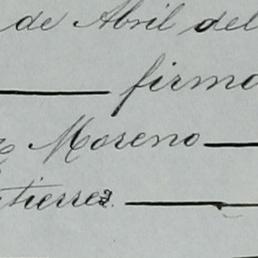 de Abril del
firmo
Moreno
tierrez.